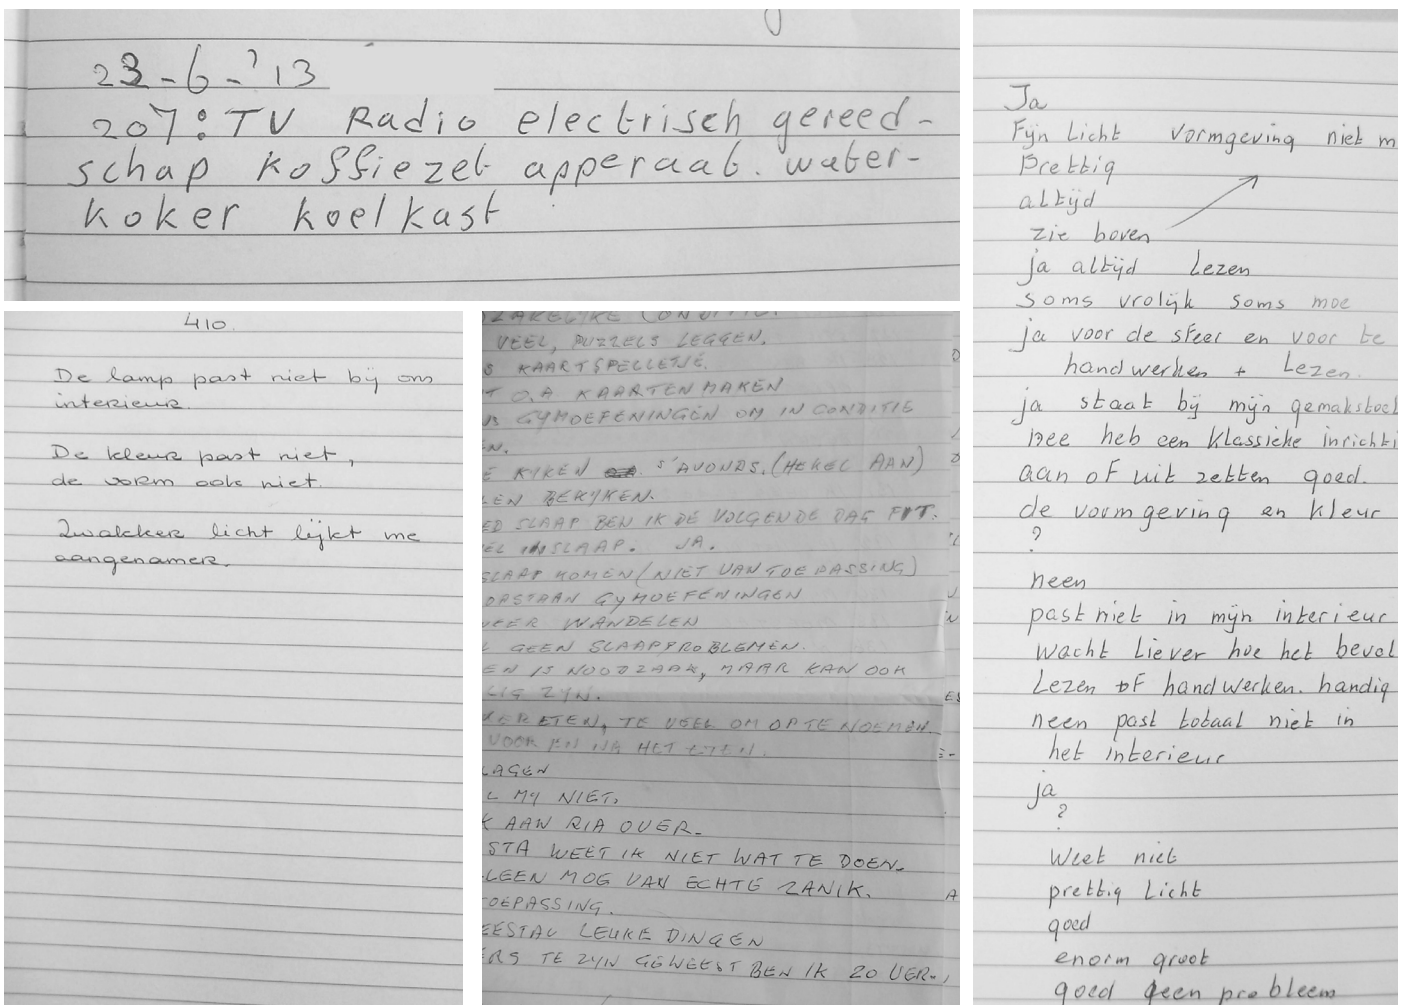 23-6-'13
207: TV Radio electrisch gereed-
schap koffiezet apperaat. water-
koker koelkast
410.
De lamp past niet bij ons
interieur.
De kleur past niet,
de vorm ook niet.
Zwakker licht lijkt me
aangenamer.
VEEL, PUZZELS LEGGEN.
KAARTSPELLETJE.
O.A KAARTEN MAKEN
GYMOEFENINGEN OM IN CONDITIE
KYKEN S'AVONDS. (HEKEL AAN)
BEKYKEN.
SLAAP BEN IK DE VOLGENDE DAG FIT.
INSLAAP. JA.
SLAAP KOMEN (NIET VAN TOEPASSING)
OPSTAAN GYMOEFENINGEN
WEER WANDELEN
GEEN SLAAPPROBLEMEN.
IS NOODZAAK, MAAR KAN OOK
ZYN.
ETEN, TE VEEL OM OP TE NOEMEN.
VOOR EN NA HET ETEN.
LAGEN
MY NIET.
AAN RIA OVER.
STA WEET IK NIET WAT TE DOEN.
LEEN MOG VAN ECHTE ZANIK.
TOEPASSING.
EESTAL LEUKE DINGEN
ERS TE ZYN GEWEEST BEN IK 20 VER-
Ja
Fijn Licht vormgeving niet m
Prettig
altijd
zie boven
ja altijd Lezen
soms vrolijk soms moe
ja voor de sfeer en voor te
handwerken + Lezen.
ja staat bij mijn gemakstoel
nee heb een klassieke inrichti
aan of uit zetten goed.
de vormgeving en kleur
?
neen
past niet in mijn interieur
wacht liever hoe het beval
Lezen of handwerken. handig
neen past totaal niet in
het interieur
ja
?
Weet niet
prettig Licht
goed
enorm groot
goed geen probleem